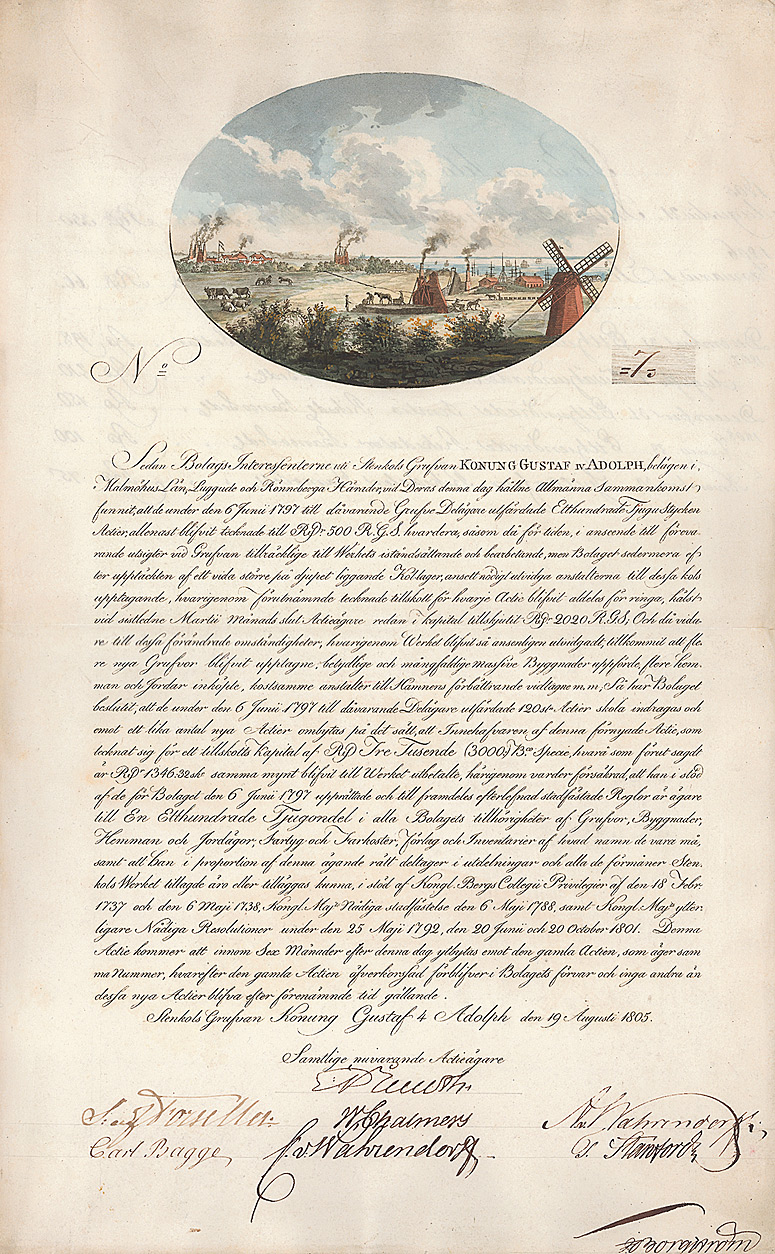 No =7=
Sedan Bolags Interessenterne uti Stenkols Grufvan KONUNG GUSTAF IV ADOLPH, belägen i,
Malmöhus Län, Luggude och Rönneberga Härader, vid Deras denna dag hållne Allmänna Sammankomst
funnit, att de under den 6 Junii 1797 till dåvarande Grufve Delägare utfärdade Etthundrade Tjugu Stycken
Actier, allenast blifvit tecknade till RDr 500 R.G.S. hvardera, såsom då för tiden, i anseende till föreva-
rande utsigter vid Grufvan tillräcklige till Werkets iståndsättande och bearbetande, men Bolaget sedermera ef-
ter upptäckten af ett vida större på djupet liggande Kol lager, ansett nödigt utvidga anstalterna till dessa kols
upptagande, hvarigenom förutnämnde tecknade tillskott för hvarje Actie blifvit aldeles för ringa, hälst
vid sistledne Martii Månads slut Actieägare redan i kapital tillskjutit RDr 2020 R.G.S, Och då vida-
re till dessa förändrade omständigheter, hvarigenom Werket blifvit så ansenligen utvidgadt, tillkommit att fle-
re nya Grufvor blifvit upptagne, betydlige och mångfaldige massive Byggnader uppförde, flere hem-
man och Jordar inköpte, kostsamme anstalter till Hamnens förbättrande vidtagne m.m; Så har Bolaget
beslutit, att de under den 6 Junii 1797 till dåvarande Delägare utfärdade 120 st Actier skola indragas och
emot ett lika antal nya Actier ombytas på det sätt, att Innehafvaren af denna förnyade Actie, som
tecknat sig för ett tillskotts Kapital af RDr Tre Tusende (3000) Bco Specie, hvaraf som förut sagdt
är RDr 1346.32 sk samma mynt blifvit till Werket utbetalte, härigenom varder försäkrad, att han i stöd
af de för Bolaget den 6 Junii 1797 upprättade och till framdeles efterlefnad stadfästade Reglor är ägare
till En Etthundrade Tjugondel i alla Bolagets tillhörigheter af Grufvor, Byggnader,
Hemman och Jordägor, Fartyg och Farkoster, Förlag och Inventarier af hvad namn de vara må,
samt att han i proportion af denna ägande rätt deltager i utdelningar och alla de förmåner Sten-
kols Werket tillagde äro eller tilläggas kunna, i stöd af Kongl. Bergs Collegii Privilegier af den 18 Febr.
1737 och den 6 Maji 1738, Kongl. Majts Nådiga stadfästelse den 6 Maji 1788, samt Kongl. Majts ytter-
ligare Nådiga Resolutioner under den 25 Maji 1792, den 20 Junii och 20 October 1801. Denna
Actie kommer att innom Sex Månader efter denna dag utbytas emot den gamla Actien, som äger sam-
ma Nummer, hvarefter den gamla Actien öfverkorssad förblifver i Bolagets förvar och inga andra än
dessa nya Actier blifva efter förenämnde tid gällande.
Stenkols Grufvan Konung Gustaf 4 Adolph den 19 Augusti 1805.
Samtlige nuvarande Actieägare
W Chalmers
Carl Bagge C. v Wahrendorff